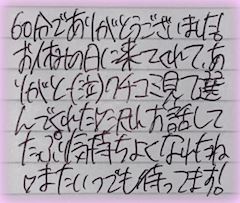 60分でありがとうございました!
お休みの日に来てくれて、あ
りがと〜(泣)クチコミ見て選
んでくれたと沢山お話して
たっぷり気持ちよくなれたね
♡またいつでも待ってます!